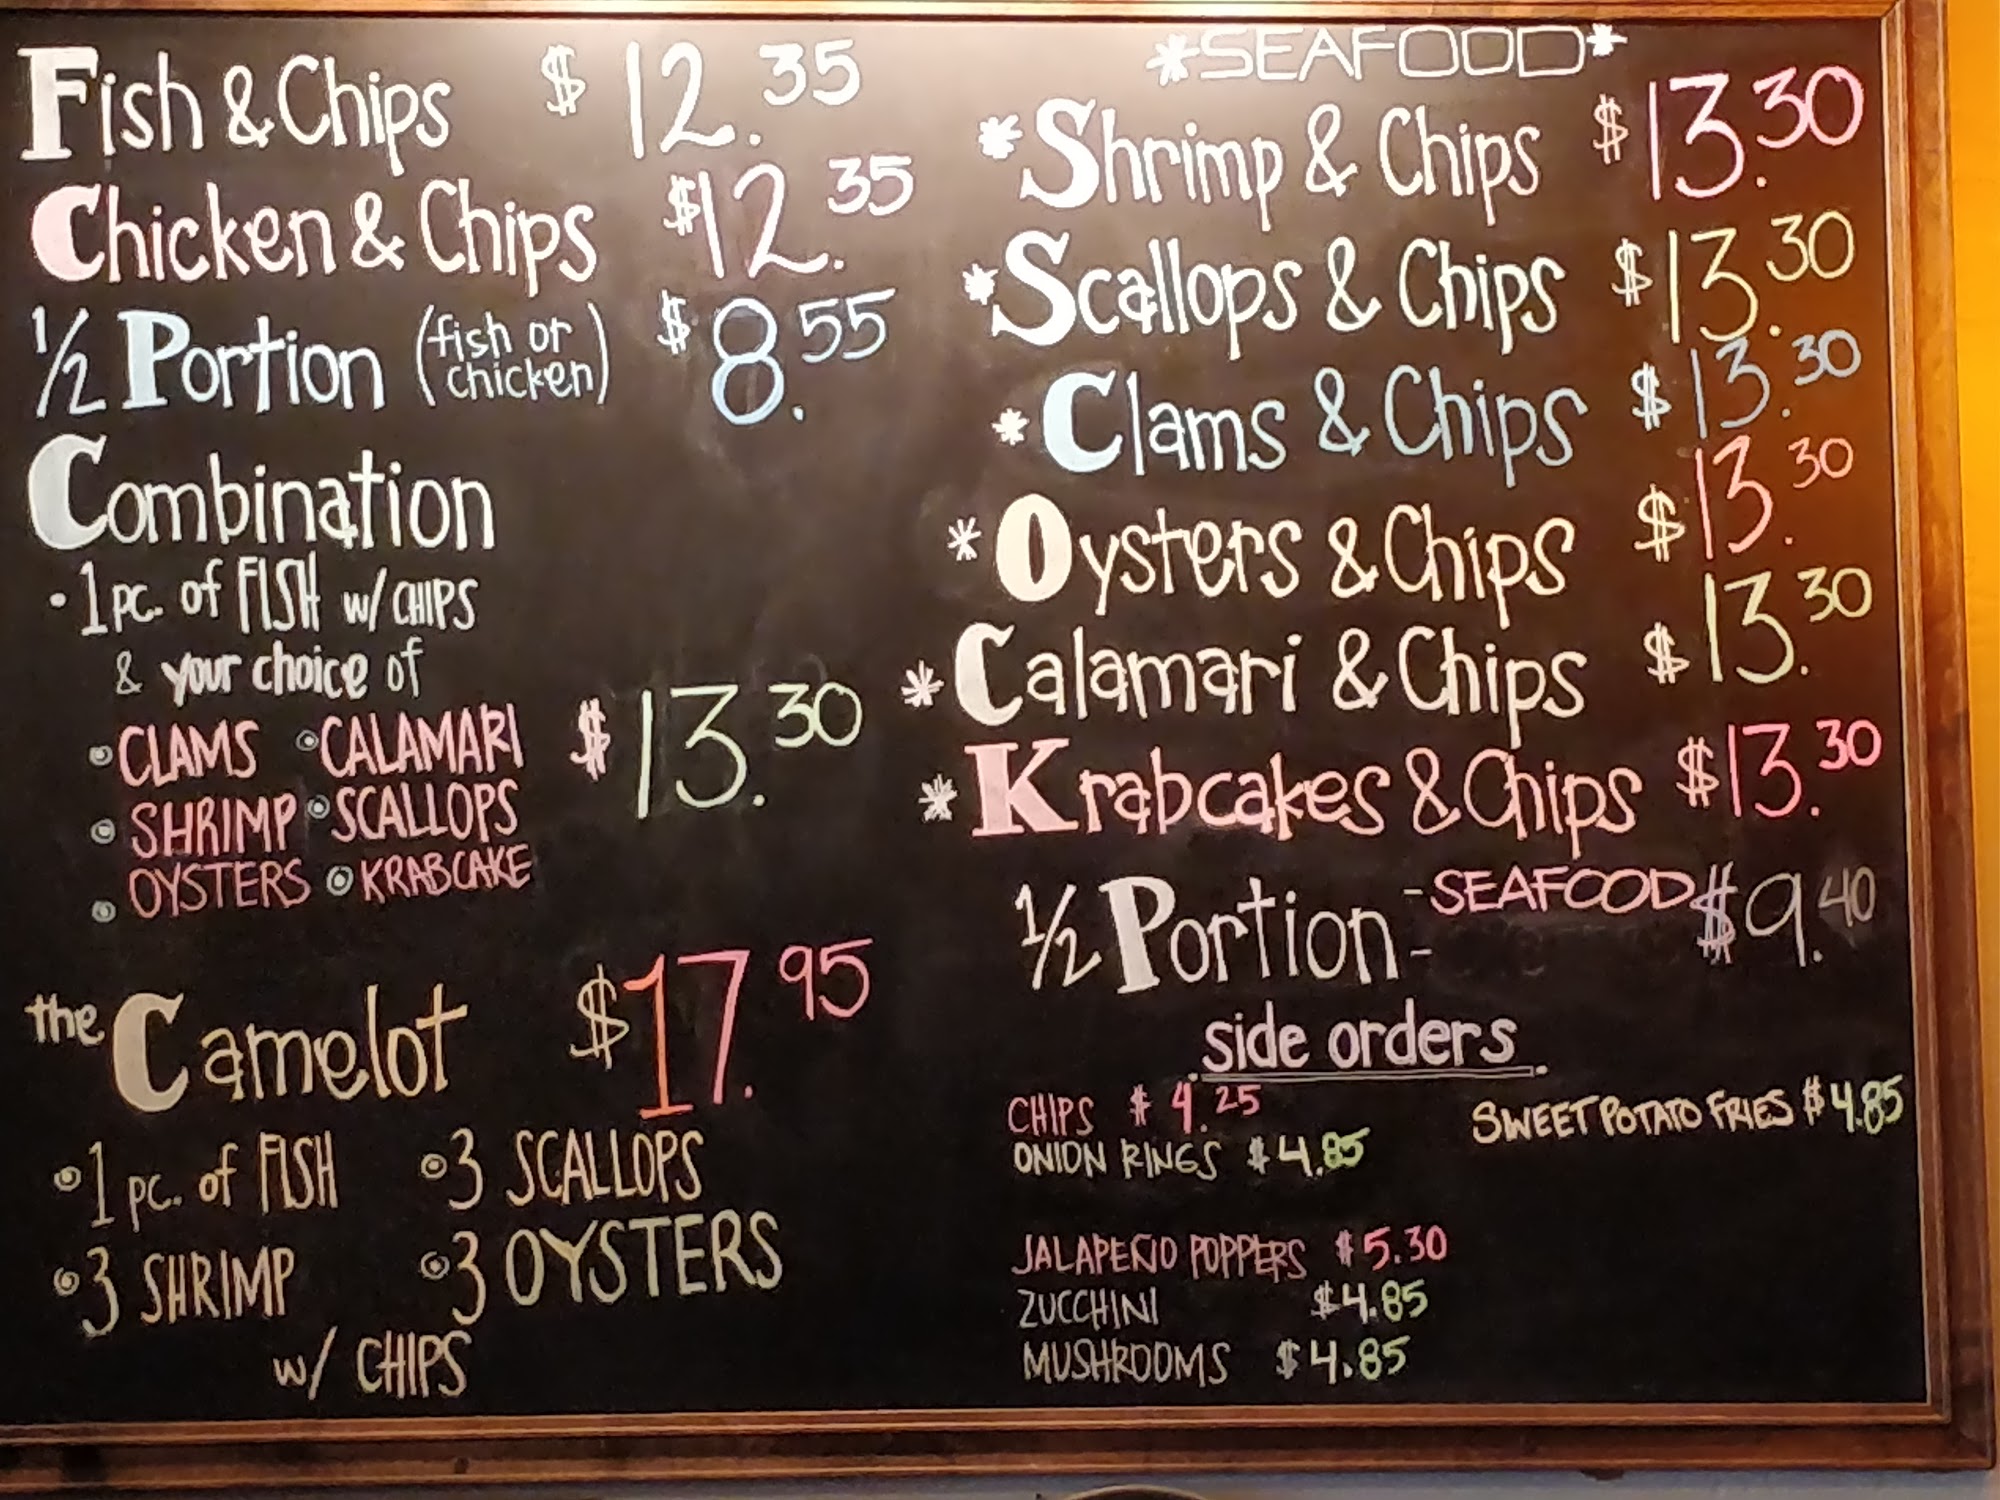 Fish & Chips $12.35
Chicken & Chips $12.35
1/2 Portion (fish or chicken) $8.55
Combination
• 1 pc. of FISH w/ CHIPS
& your choice of
CLAMS CALAMARI $13.30
SHRIMP SCALLOPS
OYSTERS KRABCAKE
the Camelot $17.95
1 pc. of FISH 3 SCALLOPS
3 SHRIMP 3 OYSTERS
w/ CHIPS
*SEAFOOD*
*Shrimp & Chips $13.30
*Scallops & Chips $13.30
*Clams & Chips $13.30
*Oysters & Chips $13.30
*Calamari & Chips $13.30
*Krabcakes & Chips $13.30
1/2 Portion - SEAFOOD - $9.40
side orders
CHIPS $4.25 SWEET POTATO FRIES $4.85
ONION RINGS $4.85
JALAPEÑO POPPERS $5.30
ZUCCHINI $4.85
MUSHROOMS $4.85